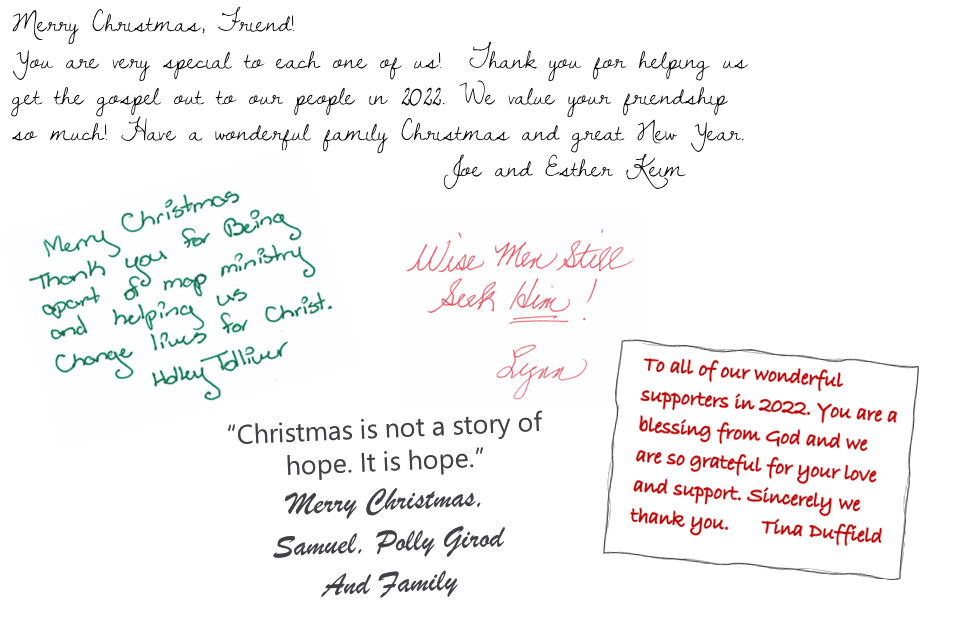 Merry Christmas, Friend!
You are very special to each one of us! Thank you for helping us
get the gospel out to our people in 2022. We value your friendship
so much! Have a wonderful family Christmas and great New Year.
Joe and Esther Keim
Merry Christmas
Thank you for Being
apart of map ministry
and helping us
Change lives for Christ.
Holley Tolliver
Wise Men Still
Seek Him!
Lynn
"Christmas is not a story of
hope. It is hope."
Merry Christmas,
Samuel, Polly Girod
And Family
To all of our wonderful
supporters in 2022. You are a
blessing from God and we
are so grateful for your love
and support. Sincerely we
thank you. Tina Duffield